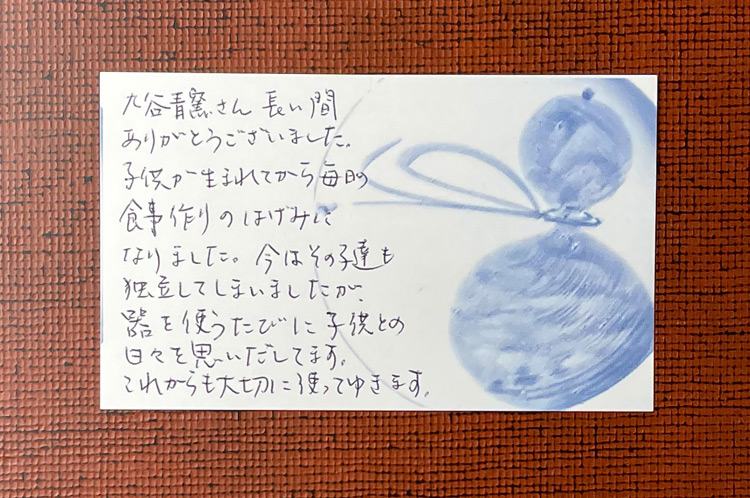 九谷青窯さん 長い間
ありがとうございました。
子供が生まれてから毎日の
食事作りのはげみに
なりました。今はその子達も
独立してしまいましたが、
器を使うたびに子供との
日々を思いだしてます。
これからも大切に使ってゆきます。